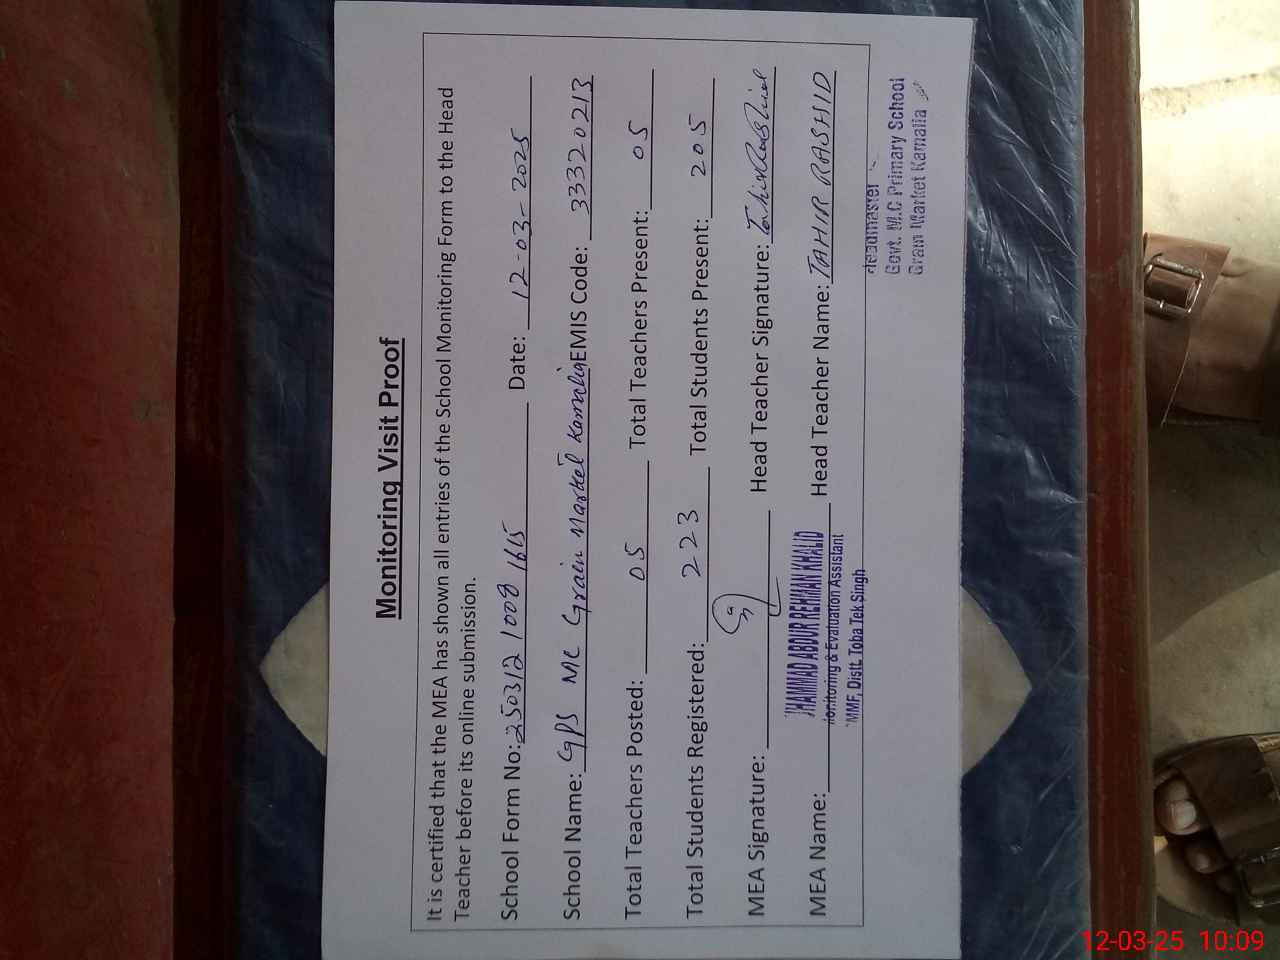 Monitoring Visit Proof
It is certified that the MEA has shown all entries of the School Monitoring Form to the Head
Teacher before its online submission.
School Form No: 250312 1008 1615 Date: 12-03-2025
School Name: GPS MC Grain Market Kamalia EMIS Code: 33320213
Total Teachers Posted: 05 Total Teachers Present: 05
Total Students Registered: 223 Total Students Present: 205
MEA Signature: Head Teacher Signature: Tahir Rashid
MEA Name: HAMMAD ABDUR REHMAN KHALID Head Teacher Name: TAHIR RASHID
Monitoring & Evaluation Assistant
MMF, Distt. Toba Tek Singh
Headmaster
Govt. M.C Primary School
Grain Market Kamalia
12-03-25 10:09